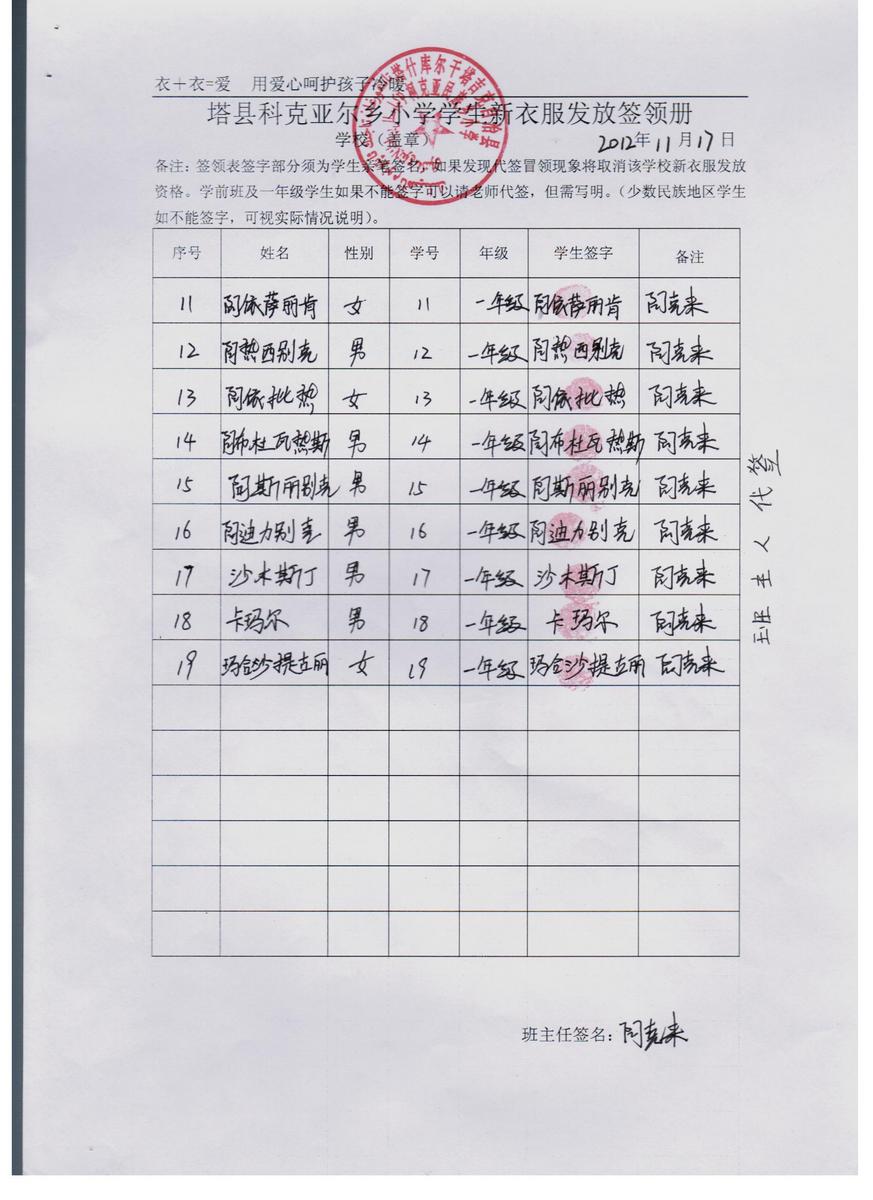 衣＋衣=爱 用爱心呵护孩子冷暖
塔县科克亚尔乡小学学生新衣服发放签领册
学校（盖章）
2012年11月17日
备注：签领表签字部分须为学生亲笔签名，如果发现代签冒领现象将取消该学校新衣服发放
资格。学前班及一年级学生如果不能签字可以请老师代签，但需写明。（少数民族地区学生
如不能签字，可视实际情况说明）。
序号 姓名 性别 学号 年级 学生签字 备注
11 阿依萨丽肯 女 11 一年级 阿依萨丽肯 阿克来
12 阿热西别克 男 12 一年级 阿热西别克 阿克来
13 阿依批热 女 13 一年级 阿依批热 阿克来
14 阿布杜瓦热斯 男 14 一年级 阿布杜瓦热斯 阿克来
15 阿斯丽别克 男 15 一年级 阿斯丽别克 阿克来
16 阿迪力别克 男 16 一年级 阿迪力别克 阿克来
17 沙木斯丁 男 17 一年级 沙木斯丁 阿克来
18 卡玛尔 男 18 一年级 卡玛尔 阿克来
19 玛合沙提古丽 女 19 一年级 玛合沙提古丽 阿克来
班主人代签
班主任签名：阿克来